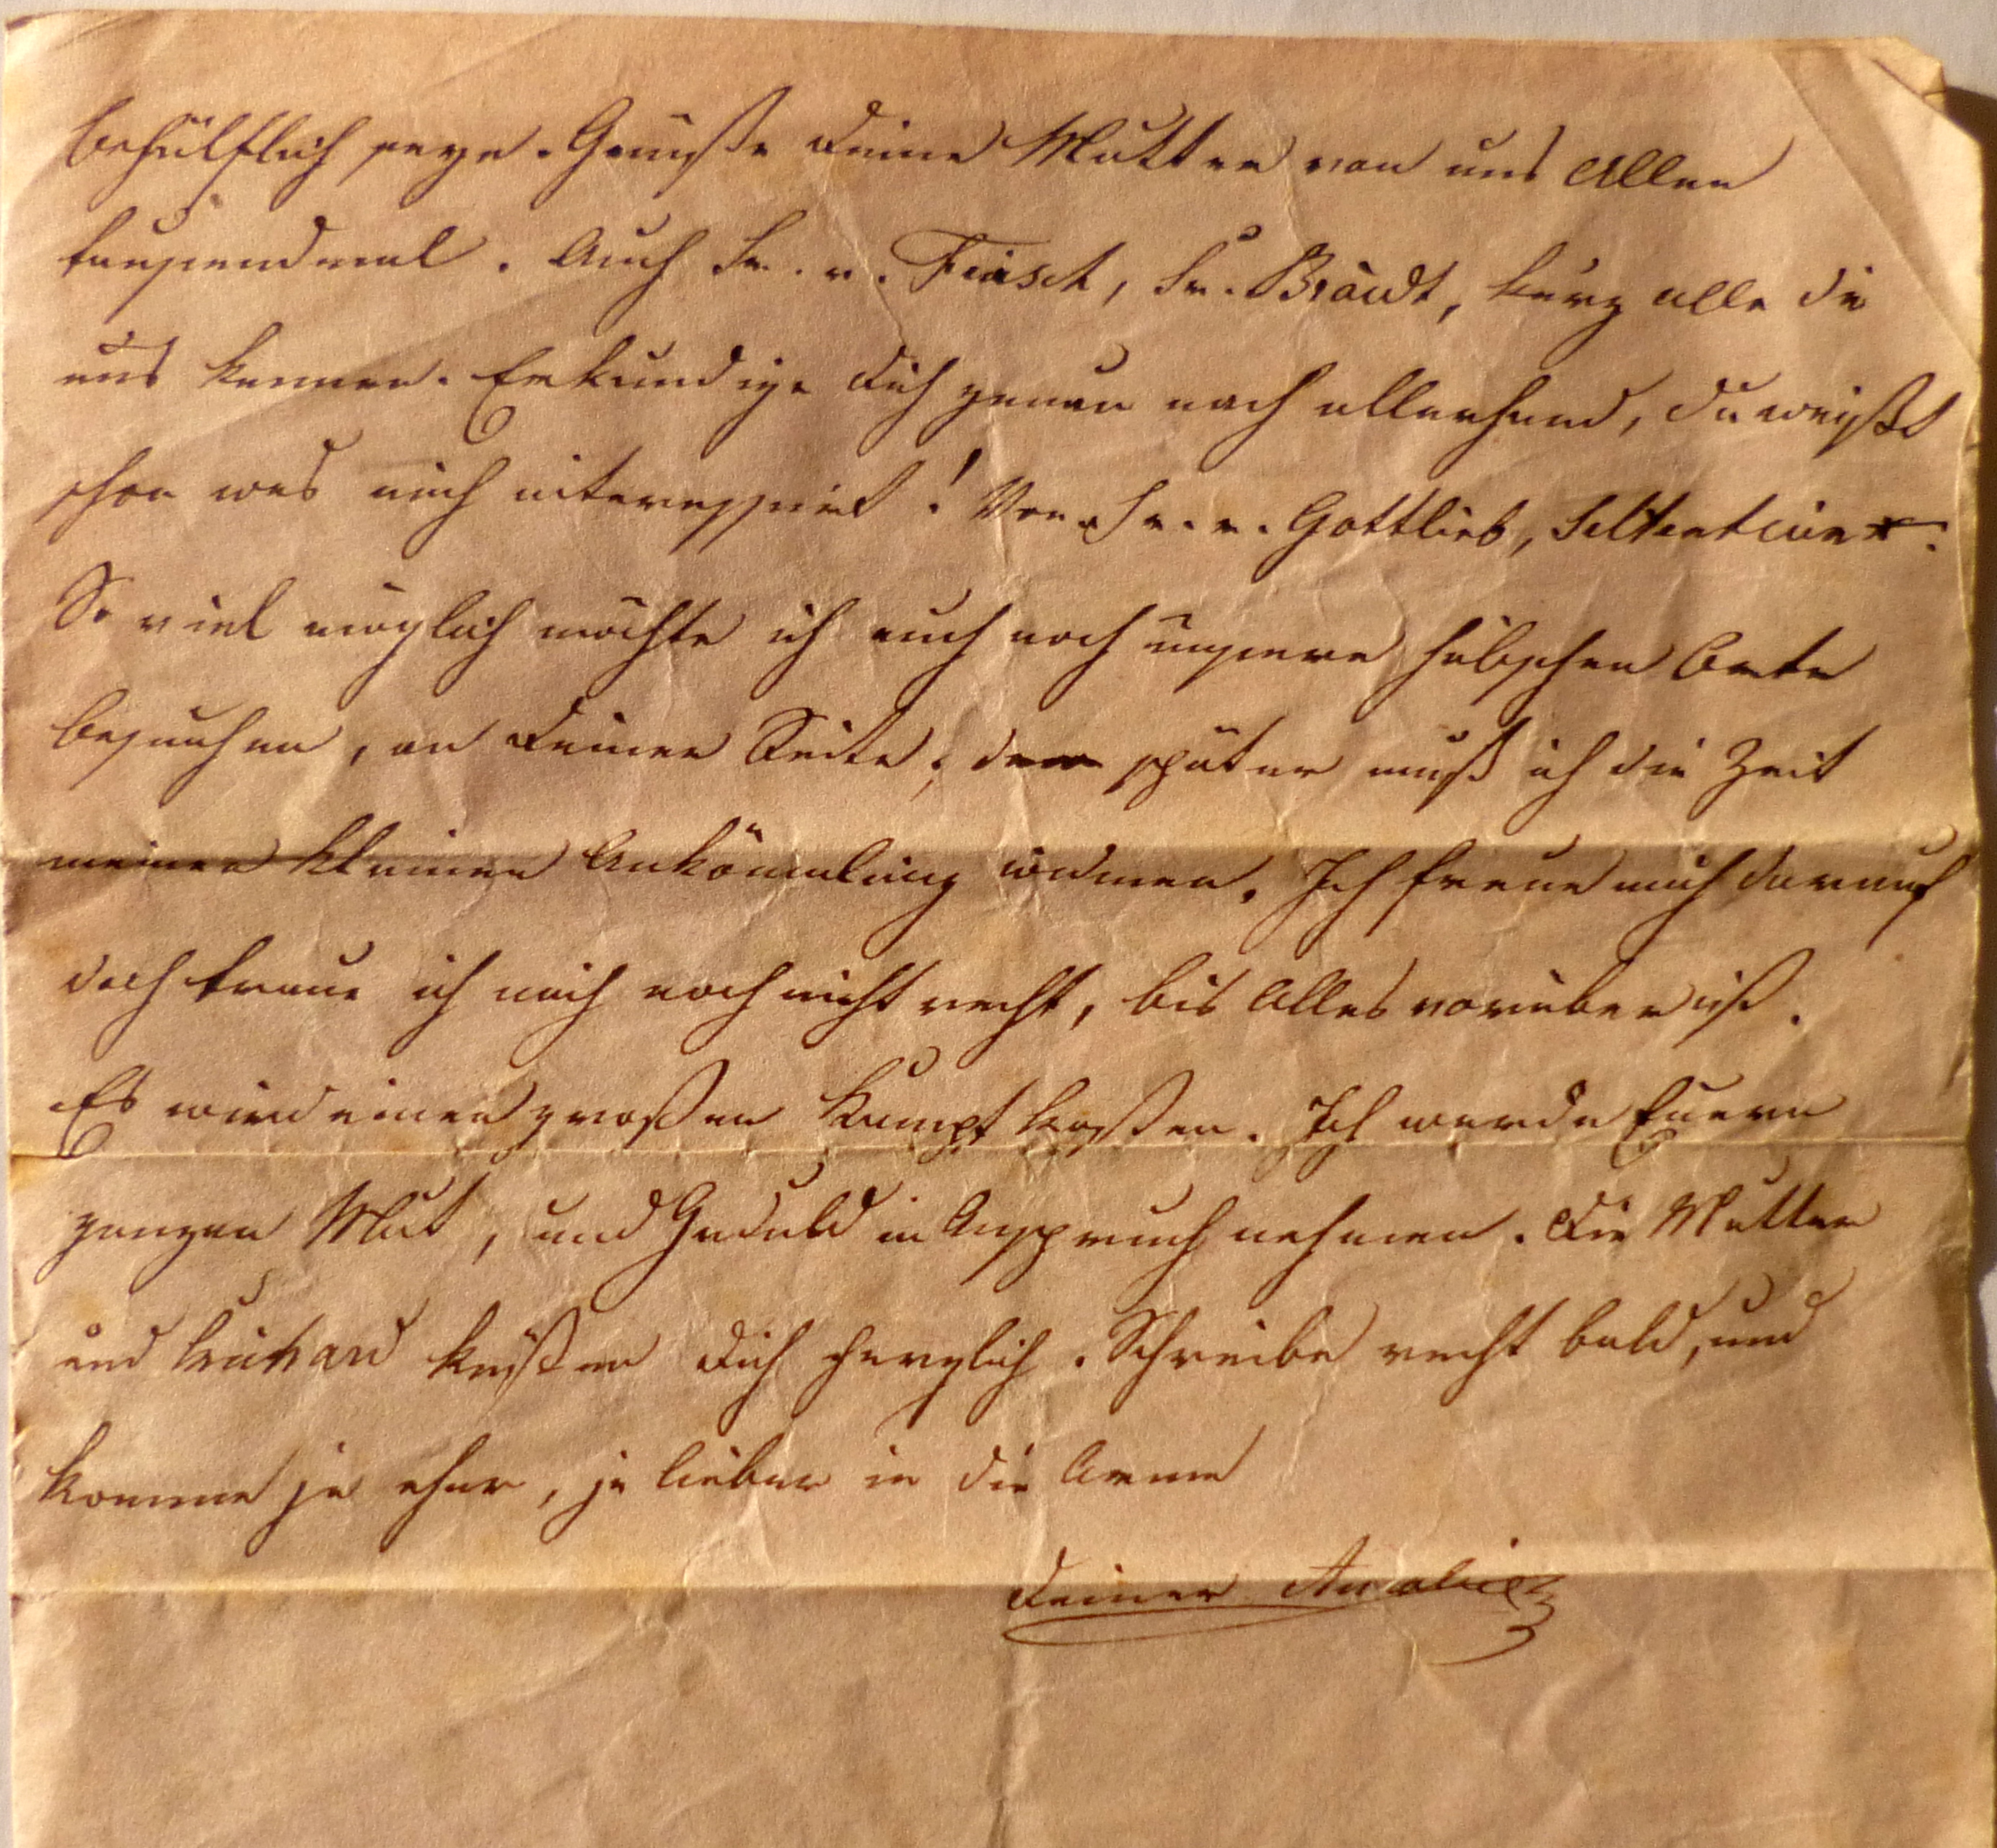 behülflich seye. Grüße Deine Mutter von uns Allen
tausendmal. Auch Fr. v. Fäsch, Fr. Brandt, kurz alle die
uns kennen. Erkundige Dich genau nach allerhand, Du weißt
schon was mich interessirt! Von Fr. v. Gottlieb,
So viel möglich möchte ich auch noch unsere hübschen Orte
besuchen, an Deiner Seite; den später muß ich die Zeit
meinen kleinen Ankömmling widmen. Ich freue mich darauf
doch traue ich mich noch nicht recht, bis Alles vorüber ist.
Es wird einen großen Kampf kosten. Ich werde Euern
ganzen Mut, und Geduld in Anspruch nehmen. Die Mutter
und küßen Dich herzlich. Schreibe recht bald, und
komme je eher, je lieber in die Arme
Deiner Amalie